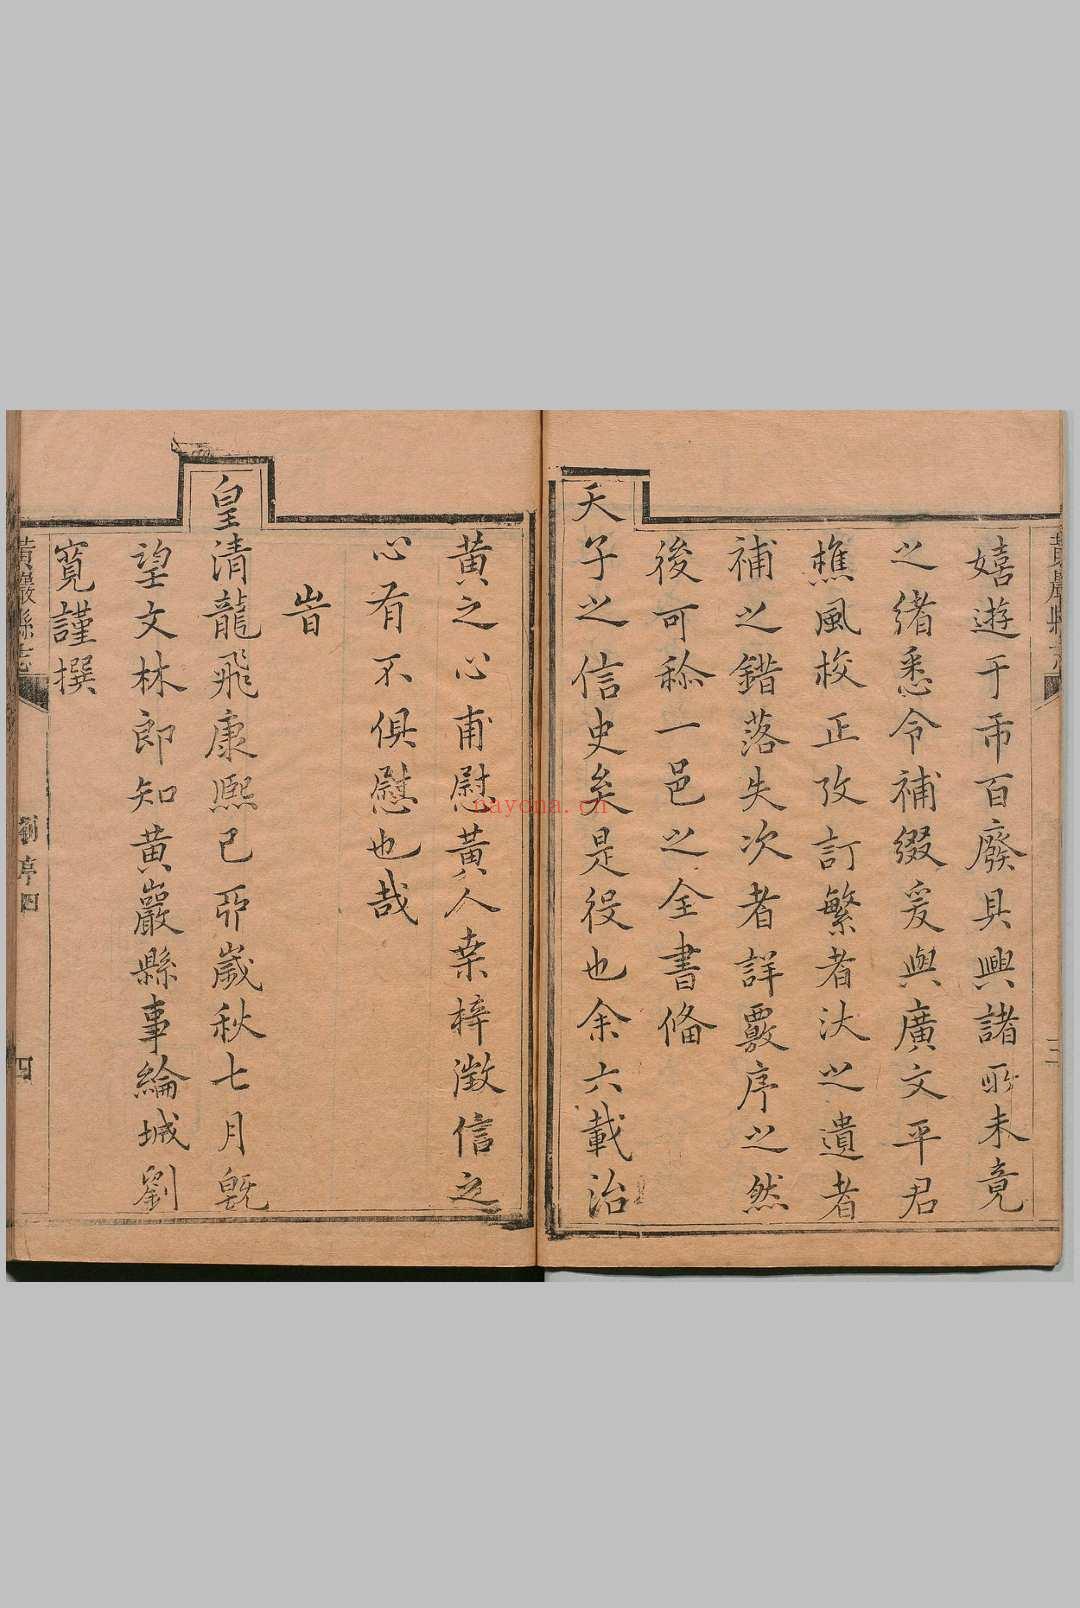 嬉遊于市百廢具興諸所未竟
之緒悉令補綴爰與廣文平君
樵風校正攷訂繁者汰之遺者
補之錯落失次者詳覈序之然
後可稱一邑之全書俻
天子之信史矣是役也余六載治
黄之心甫慰黄人桒梓徴信之
心有不俱慰也哉
旹
皇清龍飛康熈己夘歲秋七月旣
望文林郎知黄巖縣事綸城劉
寬謹撰
黄巖縣志
劉序四
四
nayona.cn